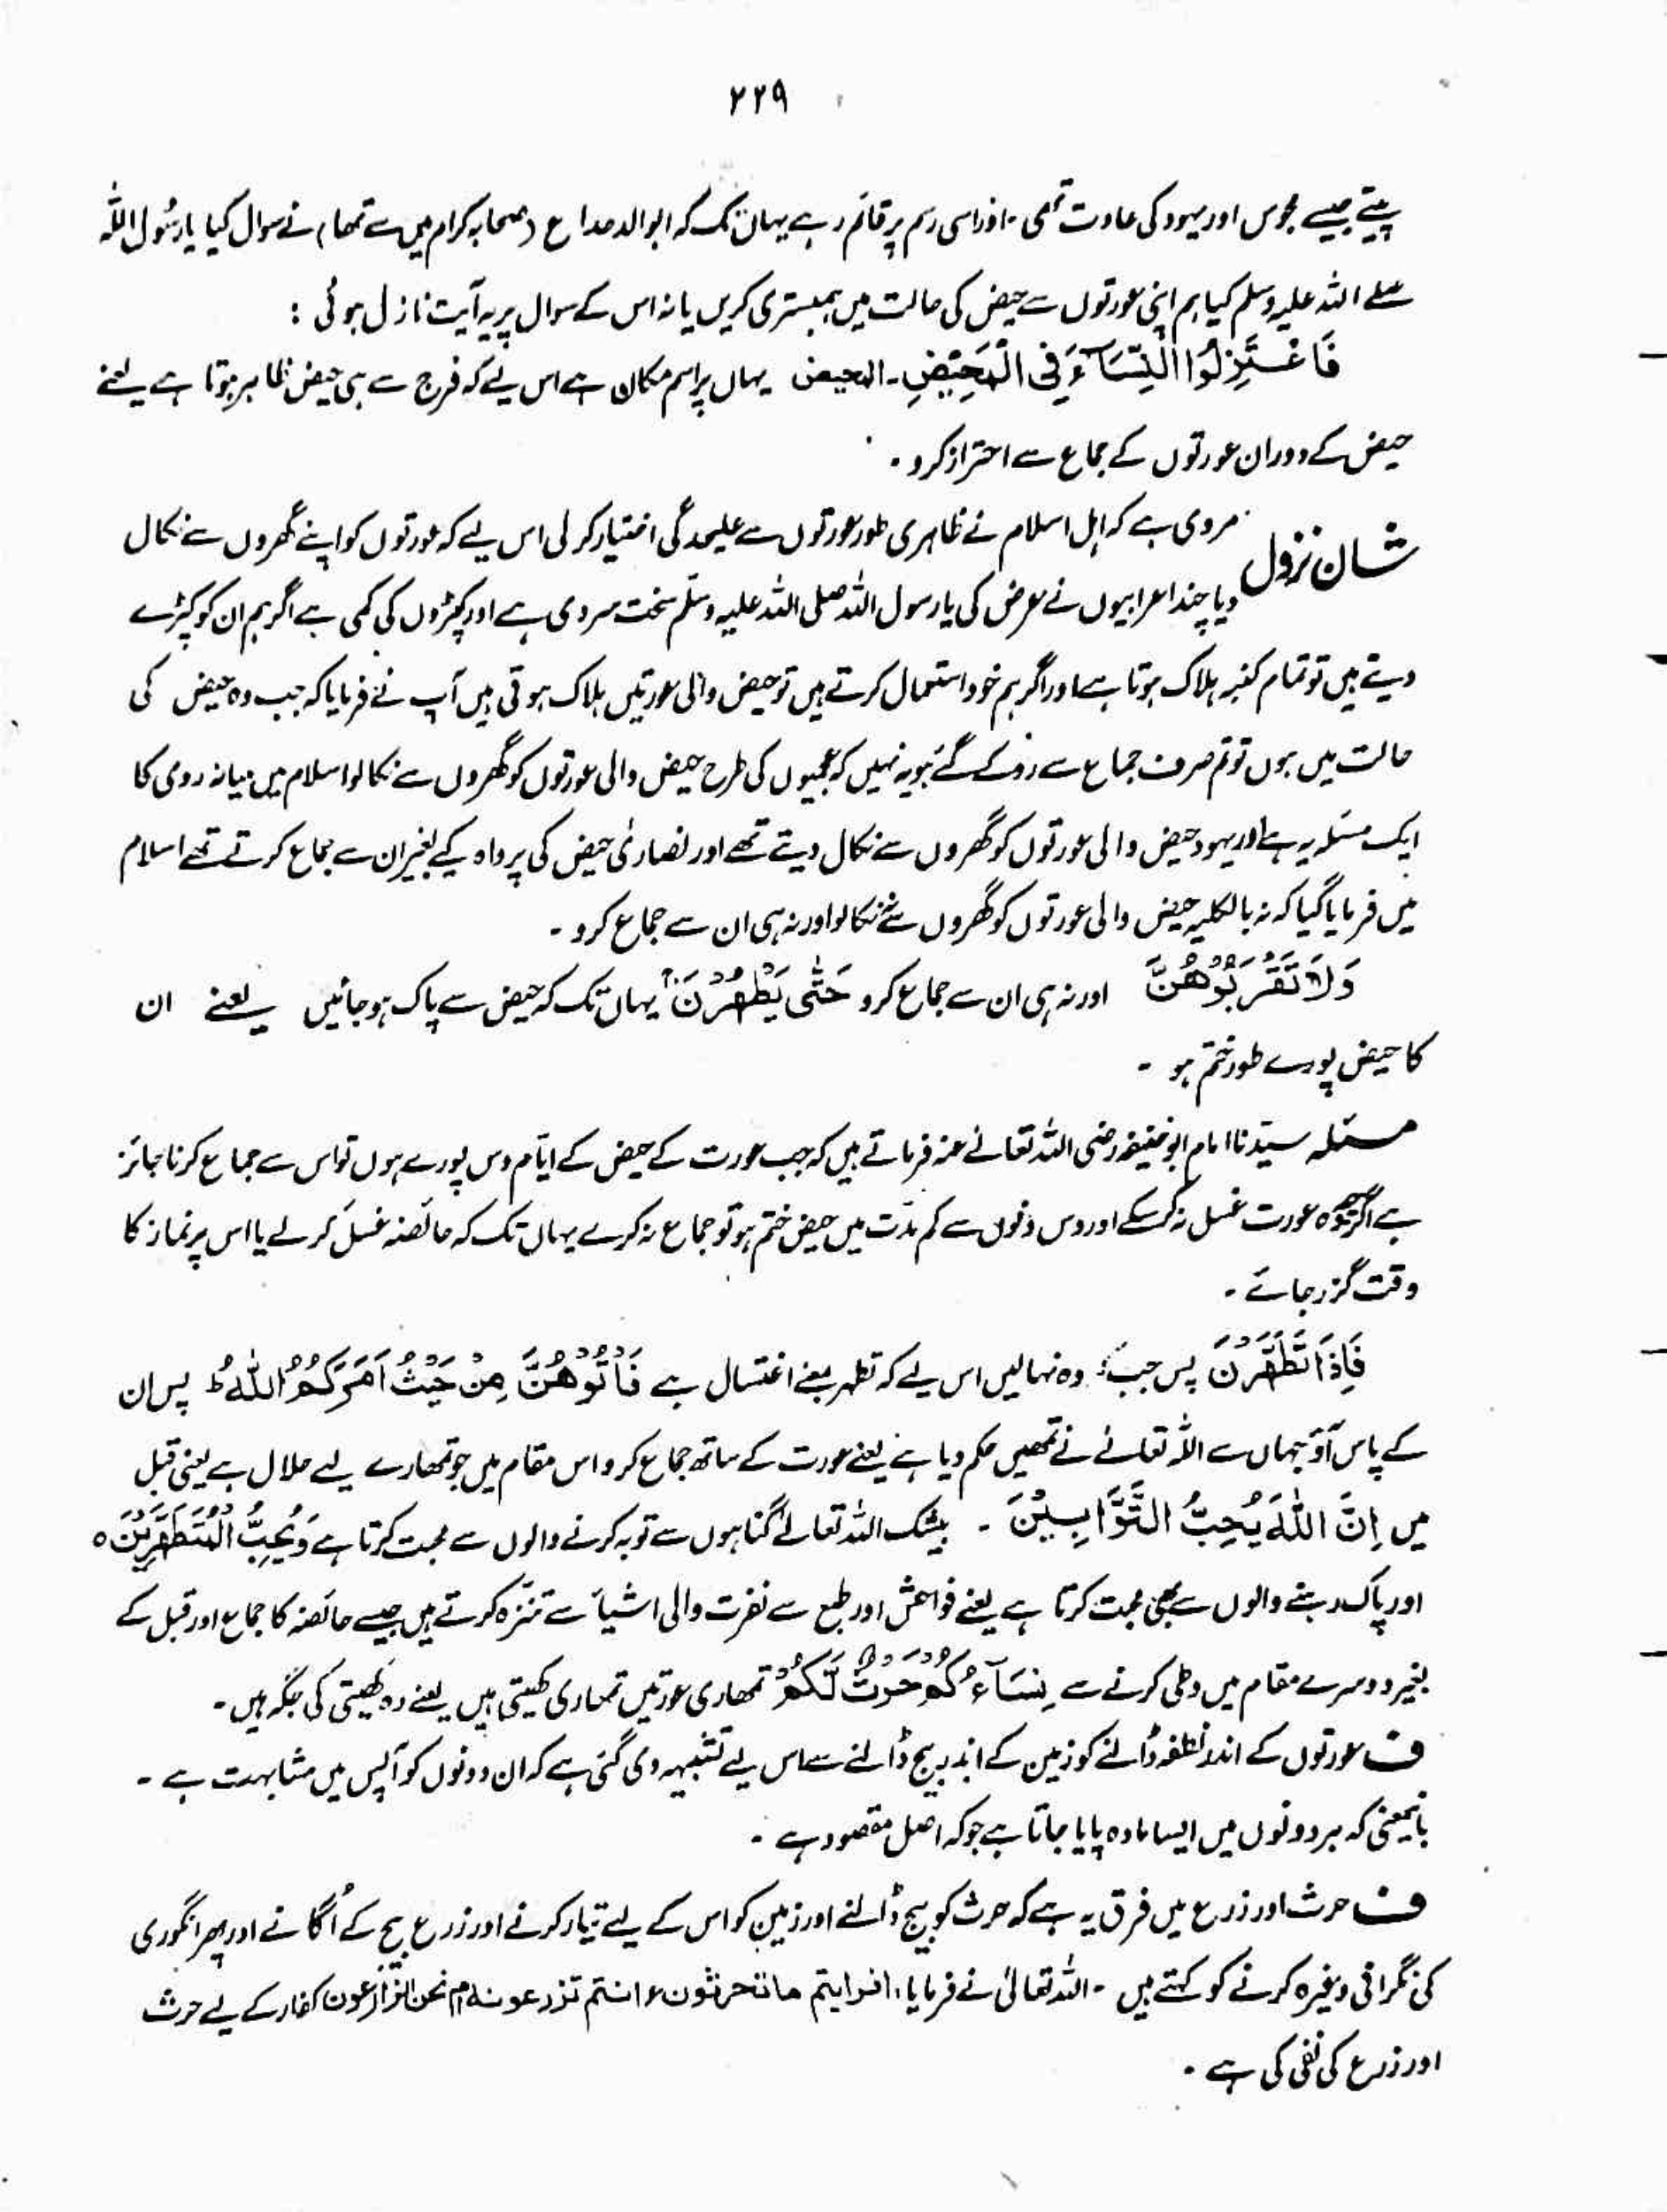 ۲۲۹
پیتے جیسے مجوس اور یہود کی عادت تھی ۔ اور اسی رسم پر قائم رہے یہاں تک کہ ابو الدحداع (صحابہ کرام میں سے تھا) نے سوال کیا یا رسُول اللّٰہ
صلے اللہ علیہ وسلم کیا ہم اپنی عورتوں سے حیض کی حالت میں ہمبستری کریں یا نہ اس کے سوال پر یہ آیت نازل ہوئی :
فَاعْتَزِلُوا النِّسَآءَ فِی الْمَحِیْضِ ۔ المحیض یہاں پر اسم مکان ہے اس لیے کہ فرج سے ہی حیض ظاہر ہوتا ہے یعنے
حیض کے دوران عورتوں کے جماع سے احتراز کرو ۔
شان نزول مروی ہے کہ اہل اسلام نے ظاہری طور عورتوں سے علیحدگی اختیار کر لی اس لیے کہ عورتوں کو اپنے گھروں سے نکال
دیا چند اعرابیوں نے عرض کی یا رسول اللہ صلی اللہ علیہ وسلّم سخت سردی ہے اور کپڑوں کی کمی ہے اگر ہم ان کو کپڑے
دیتے ہیں تو تمام کنبہ ہلاک ہوتا ہے اور اگر ہم خود استعمال کرتے ہیں تو حیض والی عورتیں ہلاک ہوتی ہیں آپ نے فرمایا کہ جب وہ حیض کی
حالت میں ہوں تو تم صرف جماع سے روکے گئے ہو یہ نہیں کہ عجمیوں کی طرح حیض والی عورتوں کو گھروں سے نکالو اسلام میں میانہ روی کا
ایک مسئلہ یہ ہے اور یہود حیض والی عورتوں کو گھروں سے نکال دیتے تھے اور نصاریٰ حیض کی پرواہ کیے بغیر ان سے جماع کرتے تھے اسلام
میں فرمایا گیا کہ نہ بالکلیہ حیض والی عورتوں کو گھروں سے نکالو اور نہ ہی ان سے جماع کرو ۔
وَلَا تَقْرَبُوْهُنَّ اور نہ ہی ان سے جماع کرو حَتّٰی یَطْهُرْنَ ۚ یہاں تک کہ حیض سے پاک ہو جائیں یعنے ان
کا حیض پورے طور ختم ہو ۔
مسئلہ سیّدنا امام ابو حنیفہ رضی اللہ تعالٰے عنہ فرماتے ہیں کہ جب عورت کے حیض کے ایّام دس پورے ہوں تو اس سے جماع کرنا جائز
ہے اگرچہ وہ عورت غسل نہ کر سکے اور دس دنوں سے کم مدّت میں حیض ختم ہو تو جماع نہ کرے یہاں تک کہ حائضہ غسل کر لے یا اس پر نماز کا
وقت گزر جائے ۔
فَاِذَا تَطَهَّرْنَ پس جب وہ نہا لیں اس لیے کہ تطہر بمعنے اغتسال ہے فَاْتُوْهُنَّ مِنْ حَیْثُ اَمَرَکُمُ اللّٰهُ ط پس ان
کے پاس آؤ جہاں سے اللہ تعالےٰ نے تمھیں حکم دیا ہے یعنے عورت کے ساتھ جماع کرو اس مقام میں جو تمھارے لیے حلال ہے یعنی قبل
میں اِنَّ اللّٰهَ یُحِبُّ التَّوَّابِیْنَ ۔ بیشک اللہ تعالےٰ گناہوں سے توبہ کرنے والوں سے محبت کرتا ہے وَیُحِبُّ الْمُتَطَهِّرِیْنَ ٥
اور پاک رہنے والوں سے بھی محبت کرتا ہے یعنے فواحش اور طبع سے نفرت والی اشیأ سے تنزّہ کرتے ہیں جیسے حائضہ کا جماع اور قبل کے
بغیر دوسرے مقام میں وطی کرنے سے نِسَآءُکُمْ حَرْثٌ لَّکُمْ تمھاری عورتیں تمھاری کھیتی ہیں یعنے وہ کھیتی کی جگہ ہیں ۔
ف عورتوں کے اندر نطفہ ڈالنے کو زمین کے اندر بیج ڈالنے سے اس لیے تشبیہہ دی گئی ہے کہ ان دونوں کو آپس میں مشابہت ہے ۔
بایمعنی کہ ہر دونوں میں ایسا مادہ پایا جاتا ہے جو کہ اصل مقصود ہے ۔
ف حرث اور زرع میں فرق یہ ہے کہ حرث کو بیج ڈالنے اور زمین کو اس کے لیے تیار کرنے اور زرع بیج کے اُگانے اور پھر انگوری
کی نگرانی وغیرہ کرنے کو کہتے ہیں ۔ اللہ تعالیٰ نے فرمایا ، افرایتم ما تحرثون ء انتم تزرعونہ ام نحن الزارعون کفار کے لیے حرث
اور زرع کی نفی کی ہے ۔